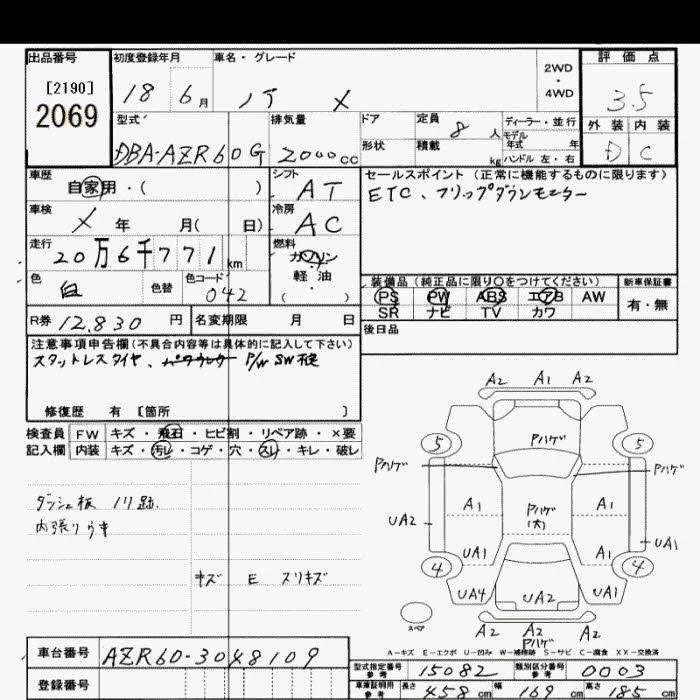 出品番号 初度登録年月 車名・グレード 2WD・4WD 評価点
[2190]
2069
18 6月 ノア X 3.5
型式 排気量 ドア 定員 8人 ディーラー・並行 外装 内装
DBA-AZR60G 2000cc 形状 積載 kg モデル年式 年 ハンドル 左・右 D C
車歴 自家用・( ) シフト AT セールスポイント(正常に機能するものに限ります)
ETC、フリップダウンモニター
車検 X 年 月( 日) 冷房 AC
走行 20万6千771km 燃料 ガソリン
色 白 色替 色コード 042 軽・油 ・( )
装備品(純正品に限り○をつけてください) 新車保証書
PS PW ABS エアB AW 有・無
SR ナビ TV カワ
R券 12,830円 名変期限 月 日 後日品
注意事項申告欄(不具合内容等は具体的に記入して下さい)
スタットレスタイヤ、 P/W SW
修復歴 有 [箇所 ]
検査員 FW キズ・飛石・ヒビ割・リペア跡・×要
記入欄 内装 キズ・汚レ・コゲ・穴・スレ・キレ・破レ
ダッシュ板 ノリ跡.
内張りウキ
キズ E スリキズ
A2 A1 A2
5 Pハゲ 5
Pハゲ Pハゲ
UA2 A1 Pハゲ(大) A1
UA1 A1 UA1
4 4
UA4 UA2 UA1
スペア A2 A2 A2
Pハゲ
A-キズ E-エクボ U-凹み W-補修跡 S-サビ C-腐食 XX-交換済
車台番号 AZR60-3048109
型式指定番号 参考 15082 類別区分番号 参考 0003
登録番号
車庫証明用 参考 長さ 458cm 幅 169cm 高さ 185cm